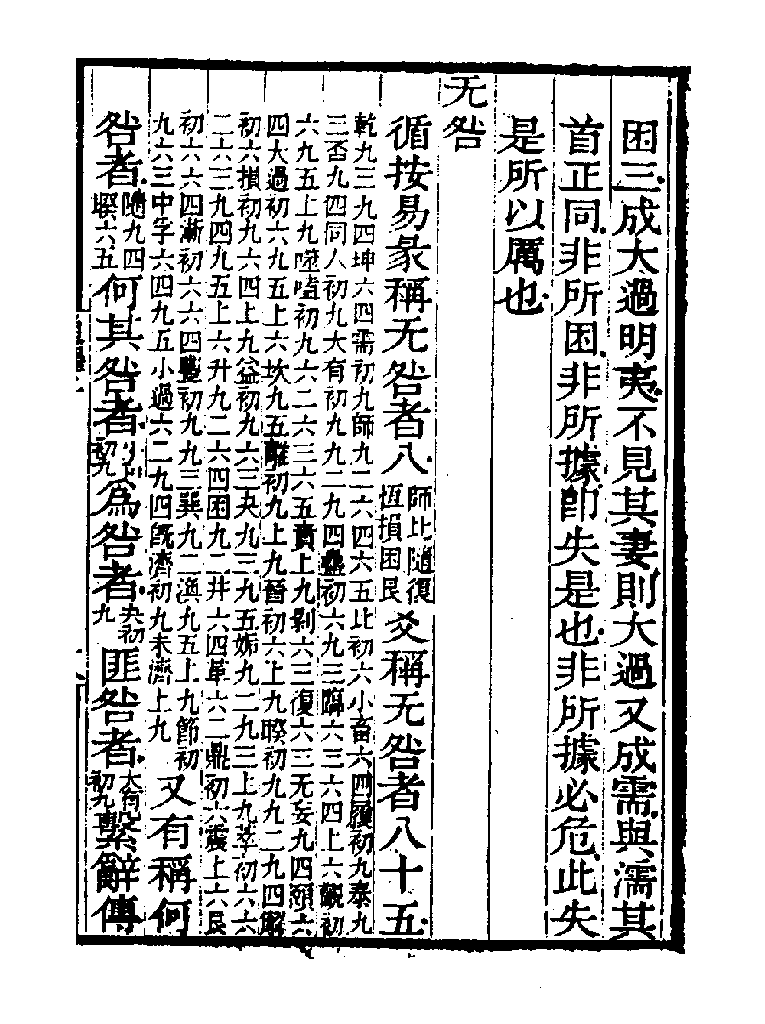 困三成大過明夷不見其妻則大過又成需與濡其
首正同非所困非所據即失是也非所據必危此失
是所以厲也
无咎
循按易彖稱无咎者八師比隨復恆損困艮爻稱无咎者八十五
乾九三九四坤六四需初九師九二六四六五比初六小畜六四履初九泰九
三否九四同人初九大有初九九二九四蠱初六九三臨六三六四上六觀初
六九五上九噬嗑初九六二六三六五賁上九剝六三復六三无妄九四頤六
四大過初六九五上六坎九五離初九上九晉初六上九睽初九九二九四解
初六損初九六四上九益初九六三夬九三九五姤九二九三上九萃初六六
二六三九四九五上六升九二六四困九二井六四革六二鼎初六震上六艮
初六六四漸初六六四豐初九九三巽九二渙九五上九節初
九六三中孚六四九五小過六二九四既濟初九未濟上九又有稱何
咎者隨九四睽六五何其咎者初九為咎者夬初九匪咎者大有初九繫辭傳